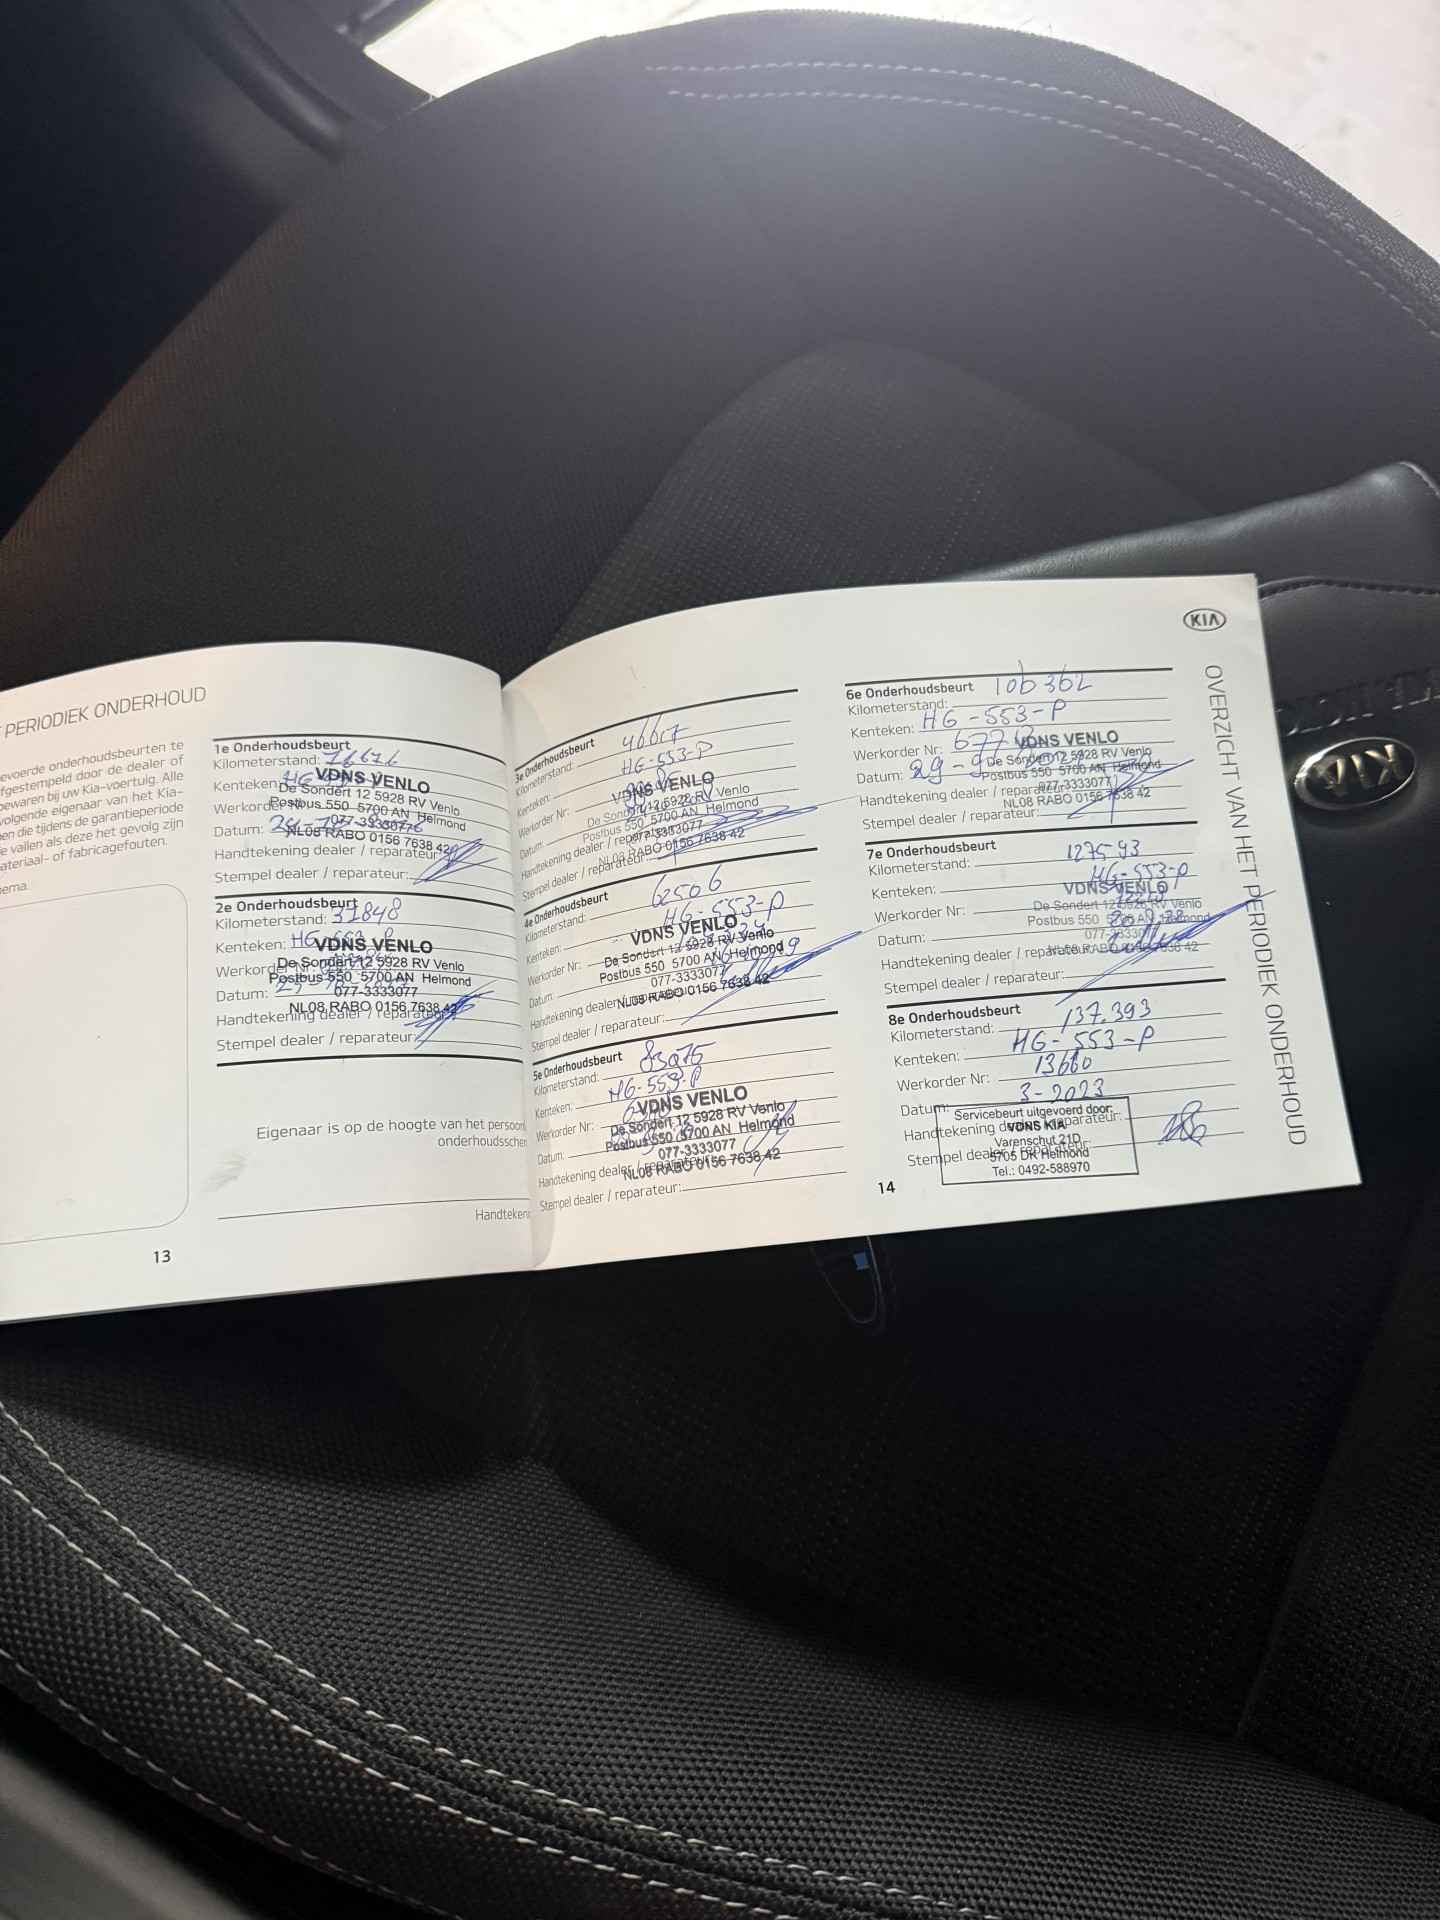 PERIODIEK ONDERHOUD
evoerde onderhoudsbeurten te
fgestempeld door de dealer of
bewaren bij uw Kia-voertuig. Alle
volgende eigenaar van het Kia-
en die tijdens de garantieperiode
e vallen als deze het gevolg zijn
ateriaal- of fabricagefouten.
ema.
13
1e Onderhoudsbeurt
Kilometerstand:
Kenteken: HG
Werkorder Nr:
Datum:
Handtekening dealer / reparateur:
Stempel dealer / reparateur:
VDNS VENLO
De Sondert 12 5928 RV Venlo
Postbus 550 5700 AN Helmond
077-3333077
NL08 RABO 0156 7638 42
2e Onderhoudsbeurt
Kilometerstand: 31848
Kenteken: HG-553-P
Werkorder Nr:
Datum:
Handtekening dealer / reparateur:
Stempel dealer / reparateur:
VDNS VENLO
De Sondert 12 5928 RV Venlo
Postbus 550 5700 AN Helmond
077-3333077
NL08 RABO 0156 7638 42
Eigenaar is op de hoogte van het persoonl
onderhoudsschem
Handteken
3e Onderhoudsbeurt
Kilometerstand:
Kenteken: HG-553-P
Werkorder Nr:
Datum:
Handtekening dealer / reparateur:
Stempel dealer / reparateur:
VDNS VENLO
De Sondert 12 5928 RV Venlo
Postbus 550 5700 AN Helmond
077-3333077
NL08 RABO 0156 7638 42
4e Onderhoudsbeurt
Kilometerstand: 62506
Kenteken: HG-553-P
Werkorder Nr:
Datum:
Handtekening dealer / reparateur:
Stempel dealer / reparateur:
VDNS VENLO
De Sondert 12 5928 RV Venlo
Postbus 550 5700 AN Helmond
077-3333077
NL08 RABO 0156 7638 42
5e Onderhoudsbeurt
Kilometerstand: 83075
Kenteken: HG-553-P
Werkorder Nr:
Datum:
Handtekening dealer / reparateur:
Stempel dealer / reparateur:
VDNS VENLO
De Sondert 12 5928 RV Venlo
Postbus 550 5700 AN Helmond
077-3333077
NL08 RABO 0156 7638 42
6e Onderhoudsbeurt
Kilometerstand: 106362
Kenteken: HG-553-P
Werkorder Nr: 677
Datum: 29-9
Handtekening dealer / reparateur:
Stempel dealer / reparateur:
VDNS VENLO
De Sondert 12 5928 RV Venlo
Postbus 550 5700 AN Helmond
077-3333077
NL08 RABO 0156 7638 42
7e Onderhoudsbeurt
Kilometerstand: 127593
Kenteken: HG-553-P
Werkorder Nr:
Datum:
Handtekening dealer / reparateur:
Stempel dealer / reparateur:
VDNS VENLO
De Sondert 12 5928 RV Venlo
Postbus 550 5700 AN Helmond
077-3333077
NL08 RABO 0156 7638 42
8e Onderhoudsbeurt
Kilometerstand: 137.393
Kenteken: HG-553-P
Werkorder Nr: 13660
Datum: 3-2023
Handtekening dealer / reparateur:
Stempel dealer / reparateur:
Servicebeurt uitgevoerd door:
VDNS KIA
Varenschut 21D
5705 DK Helmond
Tel.: 0492-588970
14
KIA
OVERZICHT VAN HET PERIODIEK ONDERHOUD
KIA